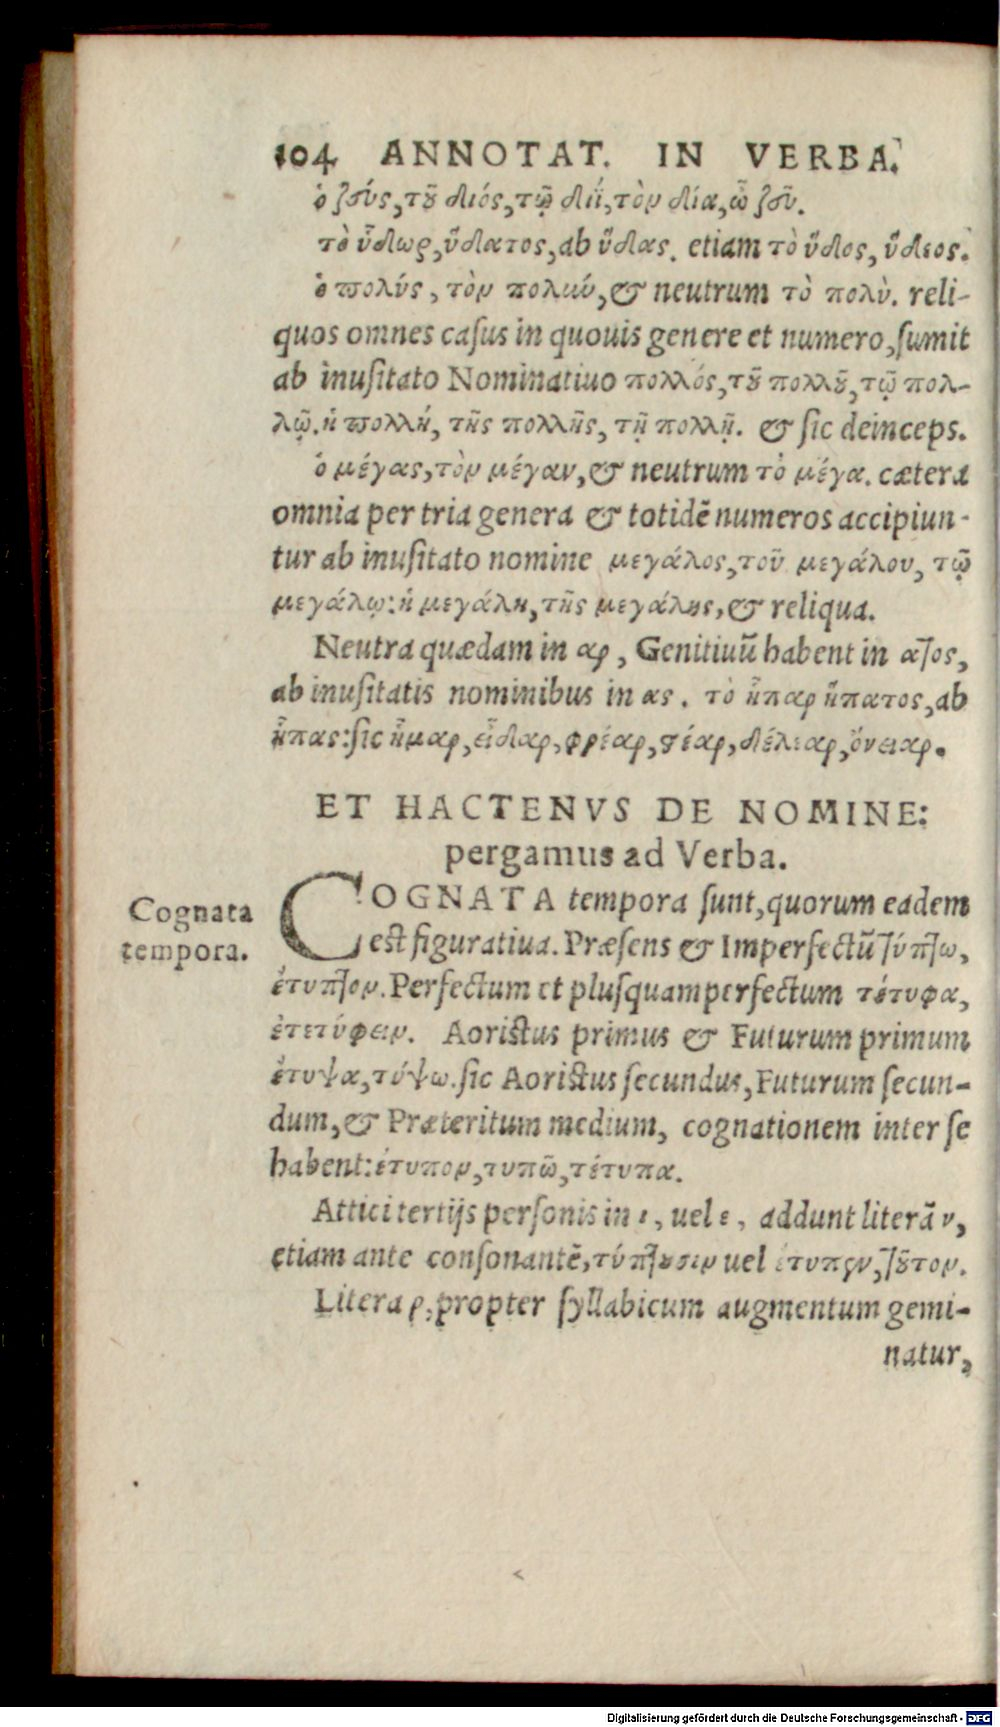 104 ANNOTAT. IN VERBA.
ὁ ζεύς, τȣ͂ διός, τῷ διΐ, τὸν δία, ὦ ζεῦ.
τὸ ὕδωρ, ὕδατος, ab ὕδας. etiam τὸ ὕδος, ὕδεος.
ὁ πολύς, τὸν πολιώ, & neutrum τὸ πολὺ. reli-
quos omnes caſus in quouis genere et numero, ſumit
ab inuſitato Nominatiuo πολλός, τȣ͂ πολλȣ͂, τῷ πολ-
λῷ. ἡ πολλή, τῆς πολλῆς, τῇ πολλῇ. & ſic deinceps.
ὁ μέγας, τὸν μέγαν, & neutrum τὸ μέγα. cætera
omnia per tria genera & totidē numeros accipiun-
tur ab inuſitato nomine μεγάλος, τοῦ μεγάλου, τῷ
μεγάλῳ: ἡ μεγάλη, τῆς μεγάλης, & reliqua.
Neutra quædam in αρ, Genitiuū habent in ατος,
ab inuſitatis nominibus in ας. τὸ ἧπαρ ἥπατος, ab
ἧπας: ſic ἦμαρ, εἶδαρ, φρέαρ, στέαρ, δέλεαρ, ὄνειαρ.
ET HACTENVS DE NOMINE:
pergamus ad Verba.
Cognata
tempora.
COGNATA tempora ſunt, quorum eadem
eſt figuratiua. Præſens & Imperfectū τύπτω,
ἔτυπτον. Perfectum et pluſquamperfectum τέτυφα,
ἐτετύφειν. Aoriſtus primus & Futurum primum
ἔτυψα, τύψω. ſic Aoriſtus ſecundus, Futurum ſecun-
dum, & Præteritum medium, cognationem inter ſe
habent: ἔτυπον, τυπῶ, τέτυπα.
Attici tertijs perſonis in ι, uel ε, addunt literā ν,
etiam ante conſonantē, τύπτȣσιν uel ἔτυπεν, τȣ͂τον.
Litera ρ, propter ſyllabicum augmentum gemi-
natur,
Digitalisierung gefördert durch die Deutsche Forschungsgemeinschaft - DFG